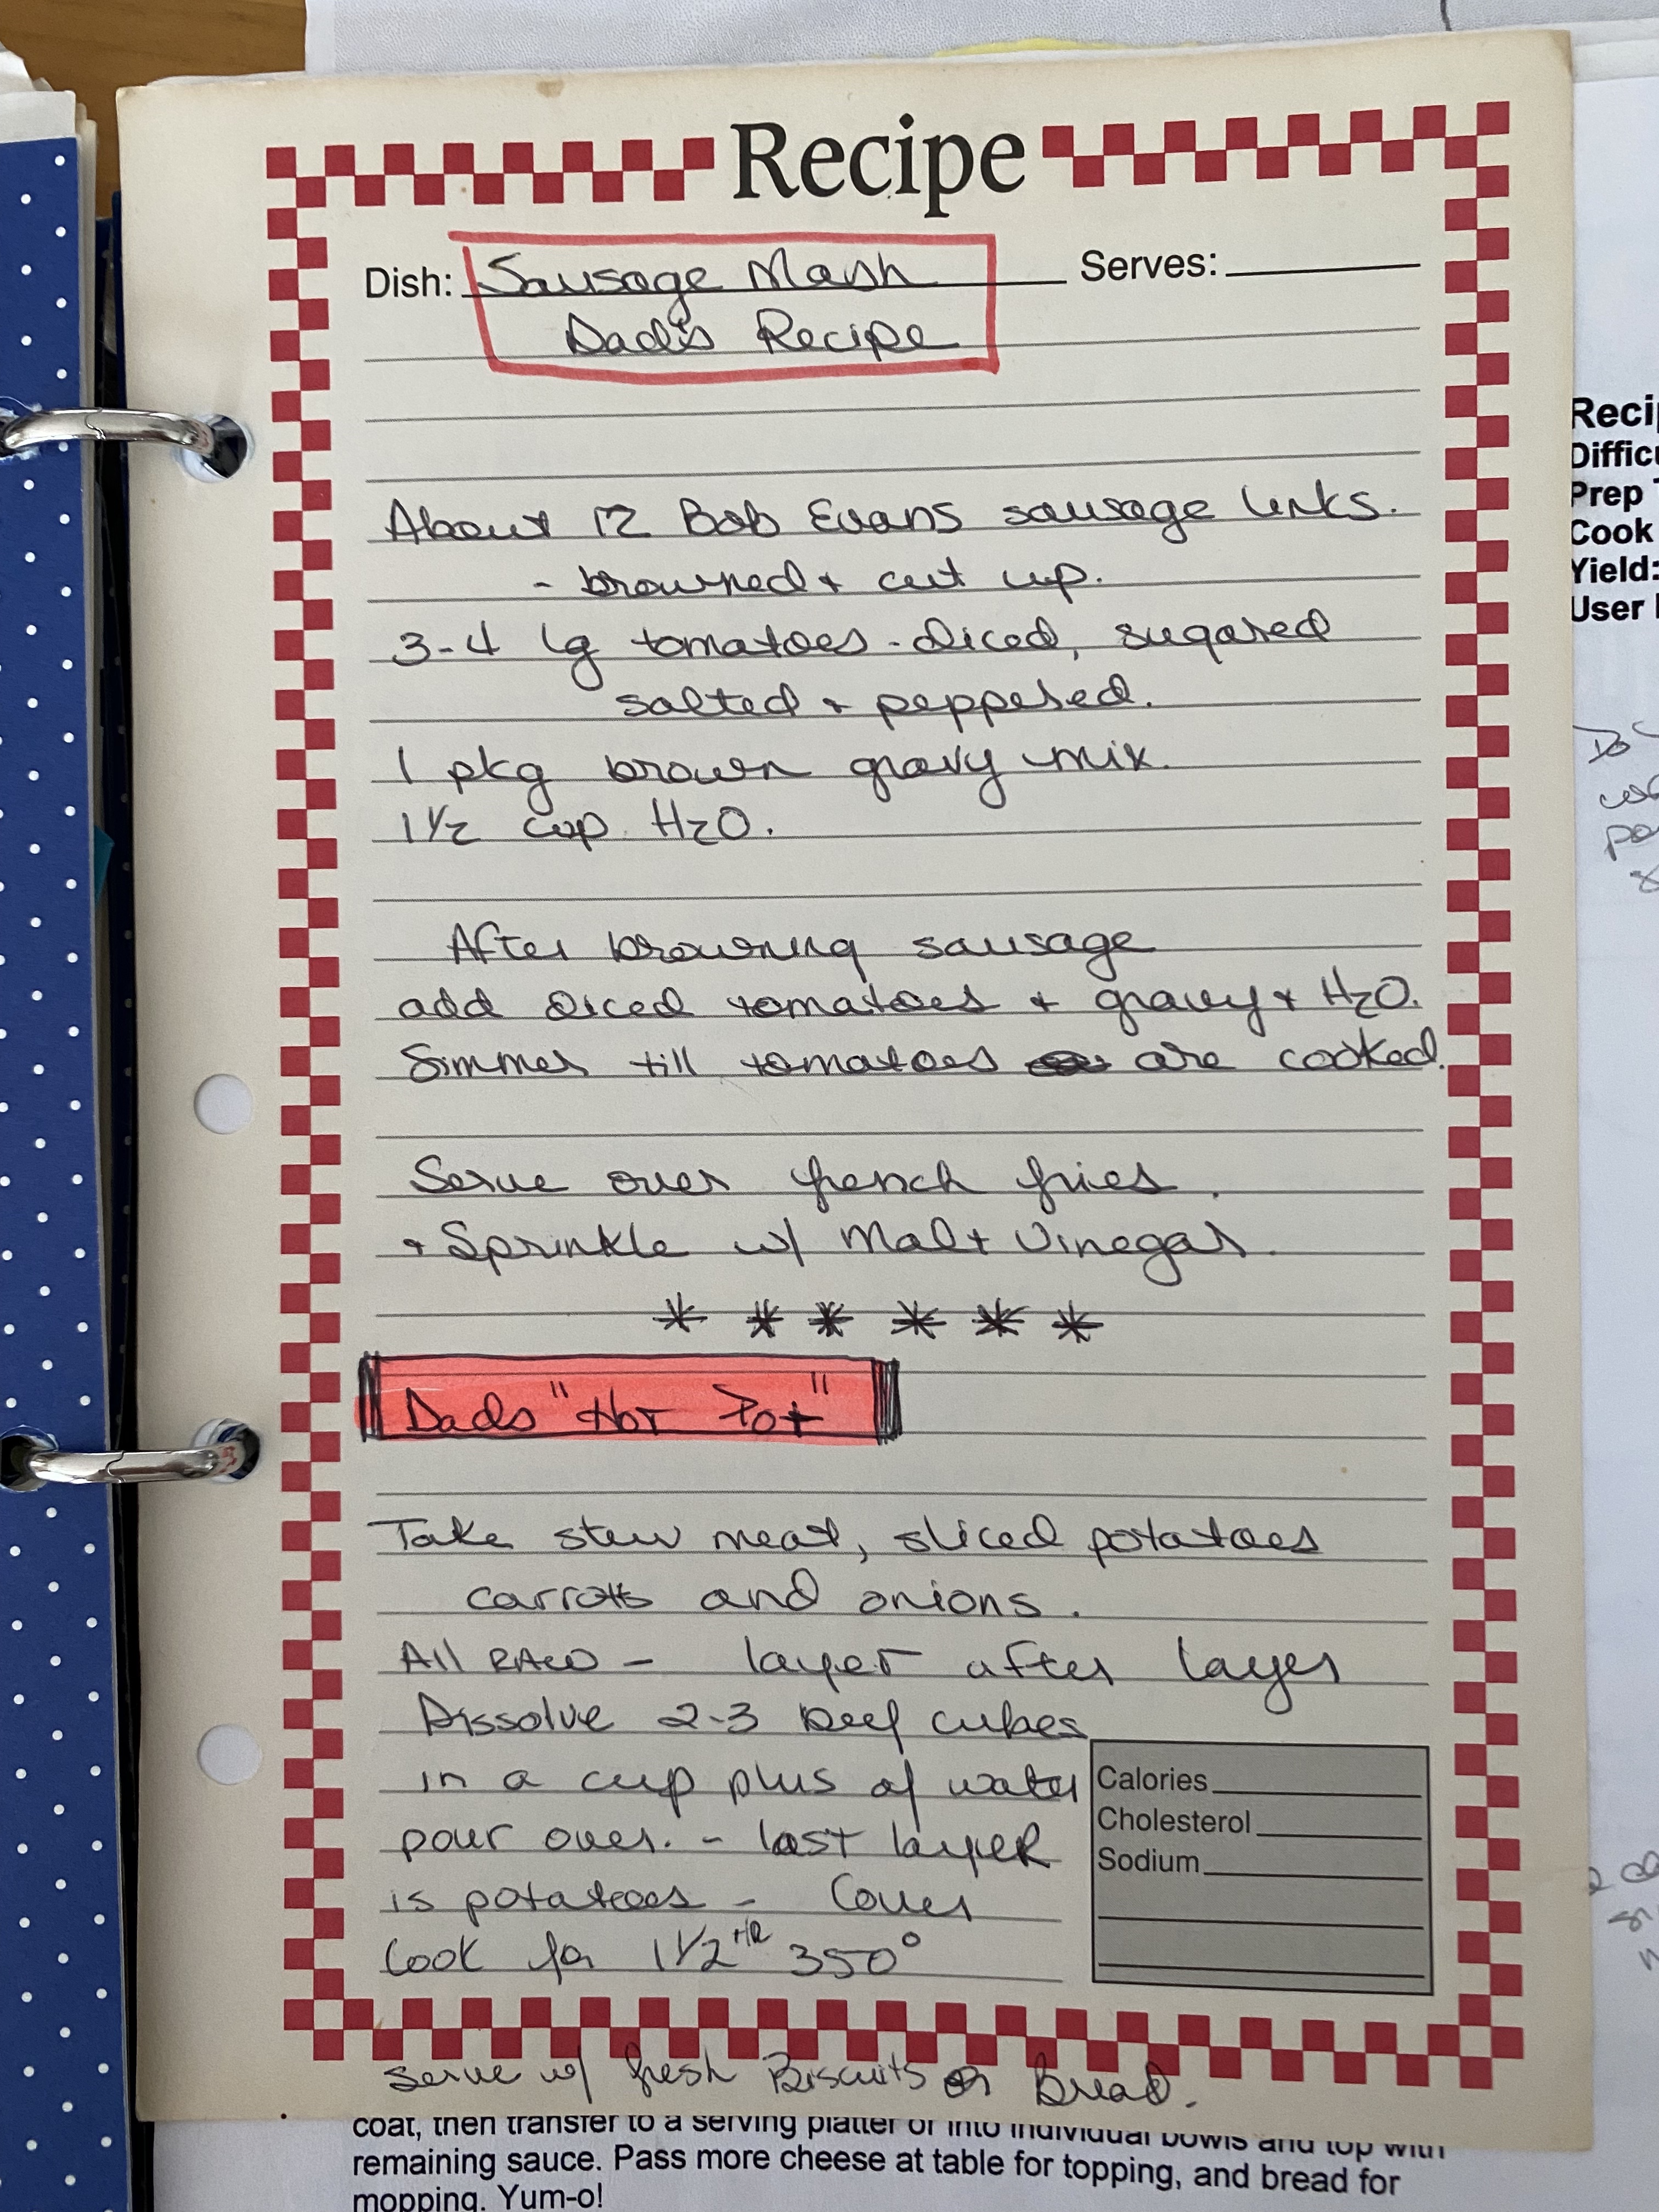 Recipe
Dish: Sausage Mash Serves:
Dad's Recipe
About 12 Bob Evans sausage links.
- browned + cut up.
3-4 lg tomatoes - diced, sugared
salted + peppered.
1 pkg brown gravy mix.
1 1/2 cup H2O.
After browning sausage
add diced tomatoes + gravy + H2O.
Simmer till tomatoes are cooked.
Serve over french fries.
+ Sprinkle w/ Malt Vinegar.
* * * * * *
Dads "Hot Pot"
Take stew meat, sliced potatoes
carrots and onions.
All RAW - layer after layer
Dissolve 2-3 beef cubes
in a cup plus of water
pour over. - last layer
is potatoes - Cover
Cook for 1 1/2 HR 350°
Calories
Cholesterol
Sodium
Serve w/ fresh Biscuits or Bread.
coat, then transfer to a serving platter or into individual bowls and top with
remaining sauce. Pass more cheese at table for topping, and bread for
mopping. Yum-o!
Prep
Cook
Yield:
User